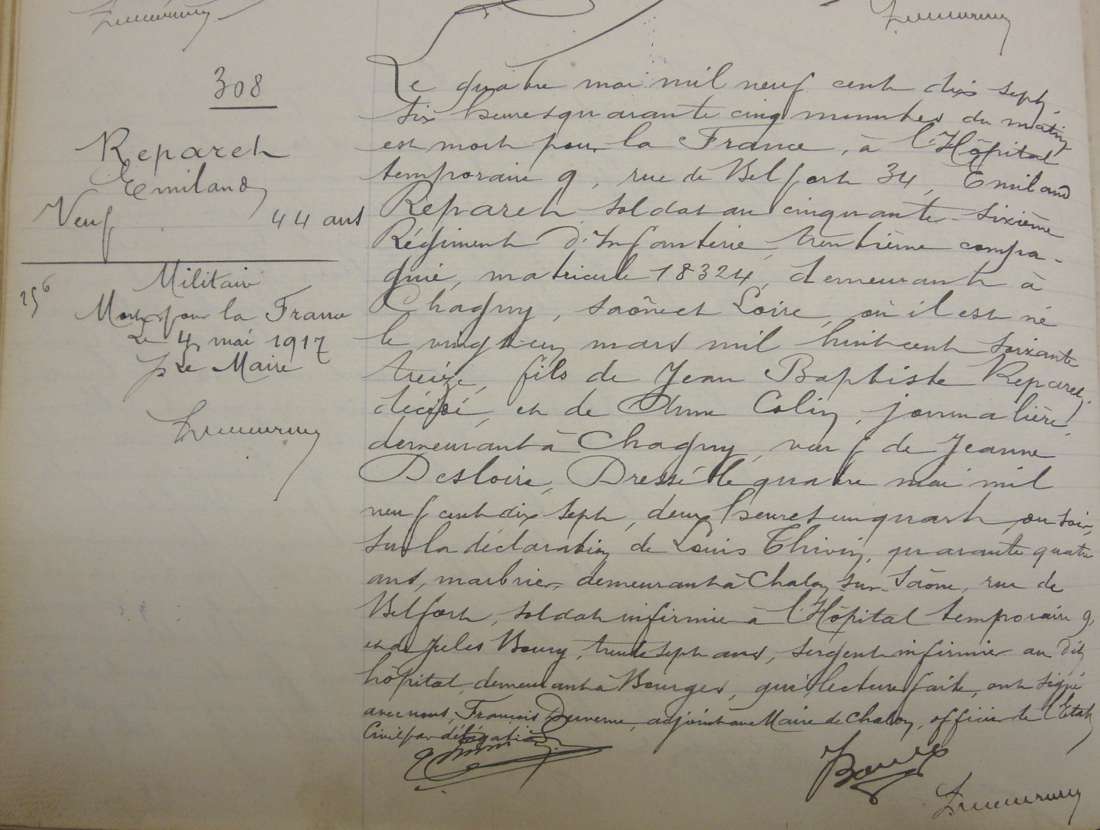 308
Reparet
Emiland
Veuf 44 ans
256
Militaire
Mort pour la France
Le 4 mai 1917
Le Maire
Le quatre mai mil neuf cent dix sept,
six heures quarante cinq minutes du matin
est mort pour la France, à l'Hôpital
temporaire 9, rue de Belfort 34, Emiland
Reparet, soldat au cinquante-sixième
Régiment d'Infanterie, trentième compa-
gnie, matricule 18324, demeurant à
Chagny, Saône et Loire, où il est né
le vingt cinq mars mil huit cent soixante
treize, fils de Jean Baptiste Reparet,
décédé, et de Anne Colin, journalière,
demeurant à Chagny, veuf de Jeanne
Desloire, Dressé le quatre mai mil
neuf cent dix sept, deux heures un quart du soir,
sur la déclaration de Louis Thivin, quarante quatre
ans, marbrier, demeurant à Chalon sur Saône, rue de
Belfort, soldat infirmier à l'Hôpital temporaire 9,
et de Jules Boury, trente sept ans, sergent infirmier au dit
hôpital, demeurant à Bourges, qui, lecture faite, ont signé
avec nous, François Duverne, adjoint au Maire de Chalon, officier de l'Etat
Civil par délégation